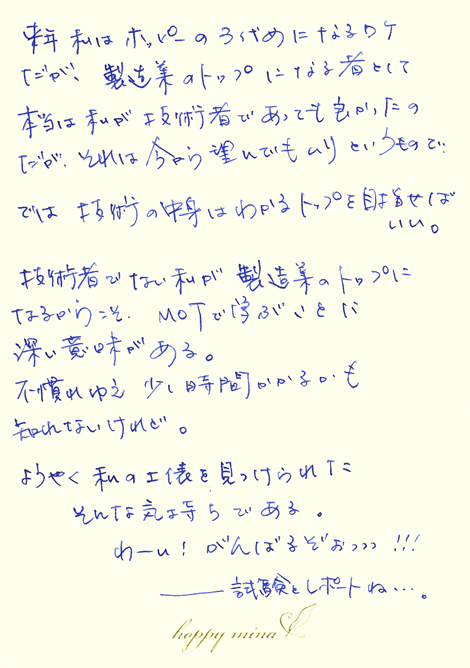 来年 私は ホッパーの 3代めに なるワケ
だが、 製造業のトップに なる者として
本当は 私が 技術者であっても良かったの
だが、それは今から 望んでもムリ というもので、
では 技術の中身は わかる トップを 目指せば
いい。
技術者でない私が 製造業のトップに
なるからこそ、 MOTで学ぶことに
深い意味がある。
不慣れゆえ 少し時間がかかるかも
知れないけれど。
ようやく 私の土俵を見つけられた
そんな気持ちである。
わーい! がんばるぞぉっっっ!!!
——試験とレポートね…。
happy mina